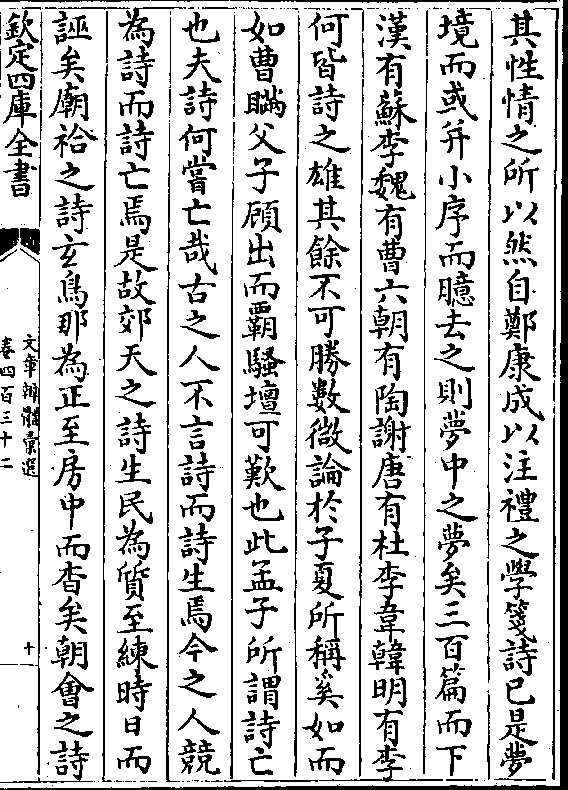 其性情之所以然自鄭康成以注禮之學箋詩已是夢
境而或并小序而臆去之則夢中之夢矣三百篇而下
漢有蘇李魏有曹六朝有陶謝唐有杜李韋韓明有李
何皆詩之雄其餘不可勝數微論於子夏所稱奚如而
如曹瞞父子顧出而霸騷壇可歎也此孟子所謂詩亡
也夫詩何嘗亡哉古之人不言詩而詩生焉今之人競
為詩而詩亡焉是故郊天之詩生民為質至練時日而
誣矣廟祫之詩玄鳥那為正至房中而杳矣朝會之詩
欽定四庫全書
文章辨體彙選
卷四百三十二
十